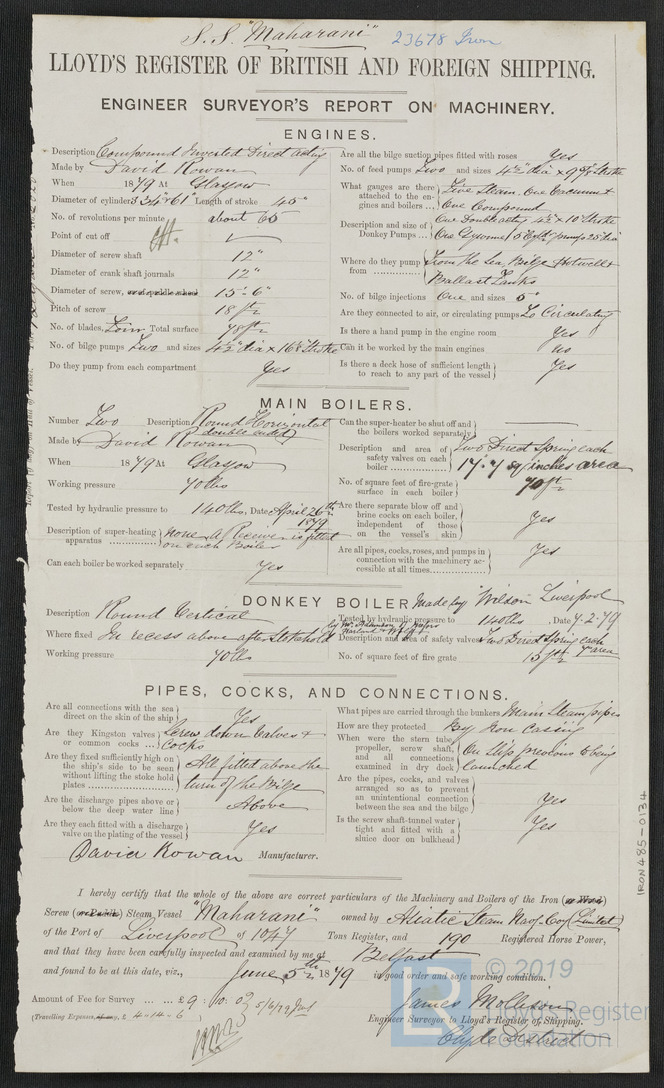 S.S. "Maharani" 23678 Iron
LLOYD'S REGISTER OF BRITISH AND FOREIGN SHIPPING.
ENGINEER SURVEYOR'S REPORT ON MACHINERY.
ENGINES.
Description Compound Inverted Direct acting
Made by David Rowan
When 1879 At Glasgow
Diameter of cylinders 34" & 61" Length of stroke 45"
No. of revolutions per minute about 65
Point of cut off
Diameter of screw shaft 12"
Diameter of crank shaft journals 12"
Diameter of screw, or of paddle wheel 15' 6"
Pitch of screw 18 ft
No. of blades, Four Total surface 48 ft
No. of bilge pumps Two and sizes 4½" dia x 16⅛ Stroke
Do they pump from each compartment Yes
Are all the bilge suction pipes fitted with roses Yes
No. of feed pumps Two and sizes 4½" dia x Stroke
What gauges are there attached to the engines and boilers ... Five Steam, One Vacuum &
One Compound
Description and size of Donkey Pumps ... One Double acting 4½ x 10 Stroke
One
Where do they pump from From the Sea, Bilge Hotwell &
Ballast Tanks
No. of bilge injections One and sizes 5"
Are they connected to air, or circulating pumps To Circulating
Is there a hand pump in the engine room Yes
Can it be worked by the main engines no
Is there a deck hose of sufficient length to reach to any part of the vessel Yes
MAIN BOILERS.
Number Two Description Round Horizontal
double ended
Made by David Rowan
When 1879 At Glasgow
Working pressure 70 lbs
Tested by hydraulic pressure to 140 lbs, Date April 26th
1879
Description of super-heating apparatus none A Receiver is fitted
on each Boiler
Can each boiler be worked separately Yes
Can the super-heater be shut off and the boilers worked separately
Description and area of safety valves on each boiler Two Direct Spring each
17.7 sq inches area
No. of square feet of fire-grate surface in each boiler 70 ft
Are there separate blow off and brine cocks on each boiler, independent of those on the vessel's skin Yes
Are all pipes, cocks, roses, and pumps in connection with the machinery accessible at all times Yes
DONKEY BOILER Made by Wilson Liverpool
Description Round Vertical
Where fixed In recess above after Stokehold
Working pressure 70 lbs
Tested by hydraulic pressure to 140 lbs, Date 7.2.79
by Mr. Adamson of Messrs
Harland & Wolff
Description and area of safety valves Two Direct Spring each
7" area
No. of square feet of fire grate 15 ft
PIPES, COCKS, AND CONNECTIONS.
Are all connections with the sea direct on the skin of the ship Yes
Are they Kingston valves or common cocks ... Screw down Valves &
Cocks
Are they fixed sufficiently high on the ship's side to be seen without lifting the stoke hold plates All fitted above the
turn of the Bilge
Are the discharge pipes above or below the deep water line Above
Are they each fitted with a discharge valve on the plating of the vessel Yes
What pipes are carried through the bunkers Main Steam pipes
How are they protected By Iron Casing
When were the stern tube, propeller, screw shaft, and all connections examined in dry dock On Slip previous to being
launched
Are the pipes, cocks, and valves arranged so as to prevent an unintentional connection between the sea and the bilge Yes
Is the screw shaft-tunnel water tight and fitted with a sluice door on bulkhead Yes
David Rowan Manufacturer.
I hereby certify that the whole of the above are correct particulars of the Machinery and Boilers of the Iron (or Wood)
Screw (or Paddle) Steam Vessel "Maharani" owned by Asiatic Steam Nav. Coy (Limited)
of the Port of Liverpool of 1047 Tons Register, and 190 Registered Horse Power,
and that they have been carefully inspected and examined by me at Belfast
and found to be at this date, viz., June 5th 1879 in good order and safe working condition.
Amount of Fee for Survey ... ... £9 : 10 : 0 5/6/79
(Travelling Expenses, if any, £ 4-14-6 )
James Mollison
Engineer Surveyor to Lloyd's Register of Shipping.
Clyde District
IRON485-0134
© 2019
Lloyd's Register
Foundation